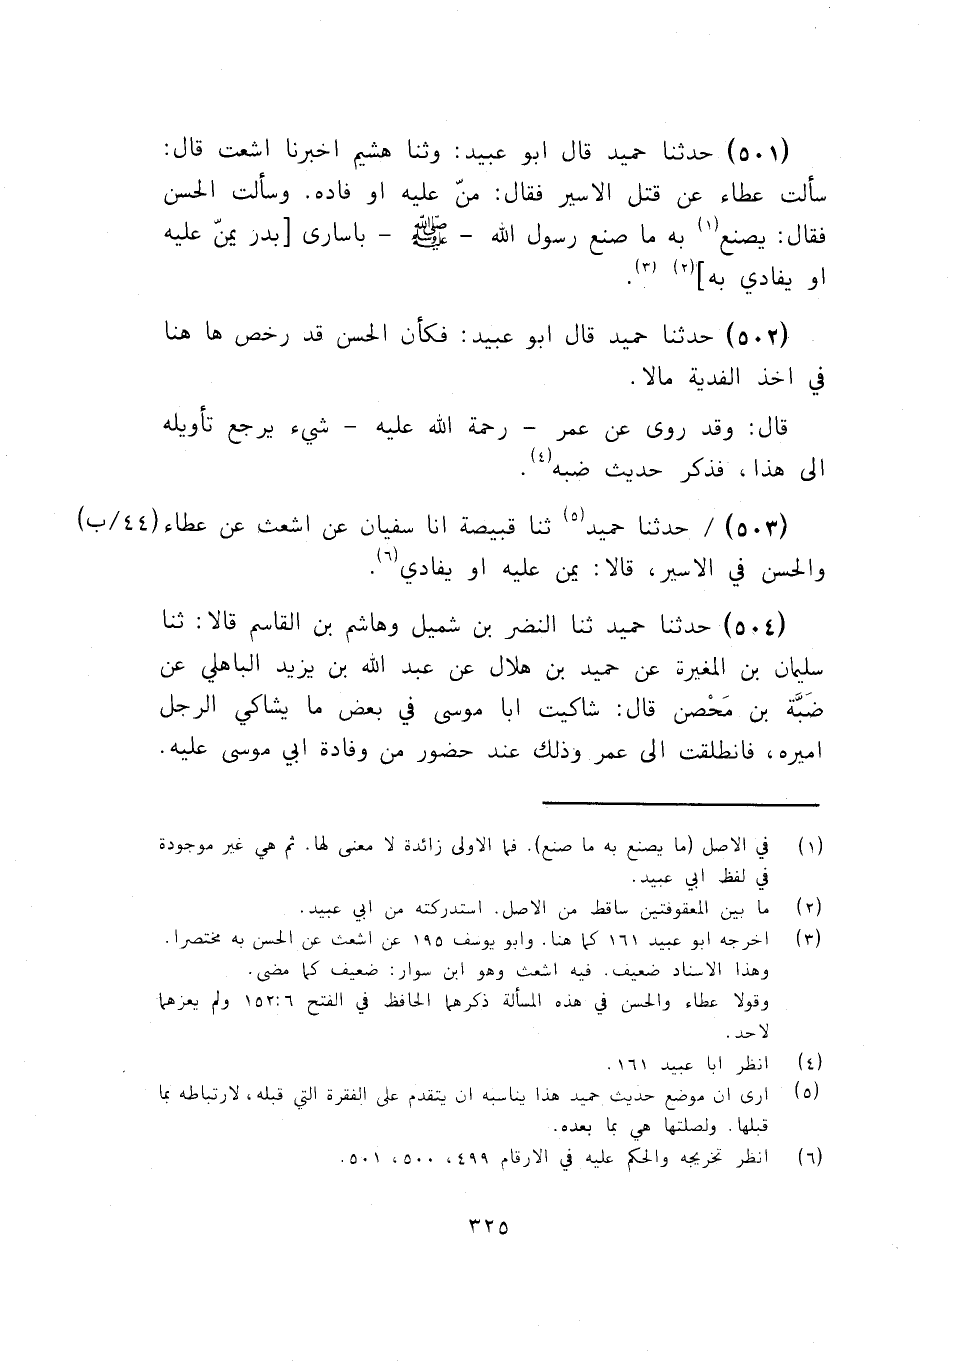 (٥٠١) حدثنا حميد قال ابو عبيد: وثنا هشيم اخبرنا اشعت قال:
سألت عطاء عن قتل الاسير فقال: منّ عليه او فاده. وسألت الحسن
فقال: يصنع(١) به ما صنع رسول الله - ﷺ - باسارى [بدر يمنّ عليه
او يفادي به](٢) (٣).
(٥٠٢) حدثنا حميد قال ابو عبيد: فكأن الحسن قد رخص ها هنا
في اخذ الفدية مالا.
قال: وقد روى عن عمر - رحمة الله عليه - شيء يرجع تأويله
الى هذا، فذكر حديث ضبه(٤).
(٥٠٣) / حدثنا حميد(٥) ثنا قبيصة انا سفيان عن اشعث عن عطاء (٤٤/ب)
والحسن في الاسير، قالا: يمن عليه او يفادي(٦).
(٥٠٤) حدثنا حميد ثنا النضر بن شميل وهاشم بن القاسم قالا: ثنا
سليمان بن المغيرة عن حميد بن هلال عن عبد الله بن يزيد الباهلي عن
ضَبَّة بن مَحْصن قال: شاكيت ابا موسى في بعض ما يشاكي الرجل
اميره، فانطلقت الى عمر وذلك عند حضور من وفادة ابي موسى عليه.
(١) في الاصل (ما يصنع به ما صنع). فما الاولى زائدة لا معنى لها. ثم هي غير موجودة
في لفظ ابي عبيد.
(٢) ما بين المعقوفتين ساقط من الاصل. استدركته من ابي عبيد.
(٣) اخرجه ابو عبيد ١٦١ كما هنا. وابو يوسف ١٩٥ عن اشعث عن الحسن به مختصرا.
وهذا الاسناد ضعيف. فيه اشعث وهو ابن سوار: ضعيف كما مضى.
وقولا عطاء والحسن في هذه المسألة ذكرهما الحافظ في الفتح ٦:١٥٢ ولم يعزهما
لاحد.
(٤) انظر ابا عبيد ١٦١.
(٥) ارى ان موضع حديث حميد هذا يناسبه ان يتقدم على الفقرة التي قبله، لارتباطه بما
قبلها. ولصلتها هي بما بعده.
(٦) انظر تخريجه والحكم عليه في الارقام ٤٩٩، ٥٠٠، ٥٠١.
٣٢٥